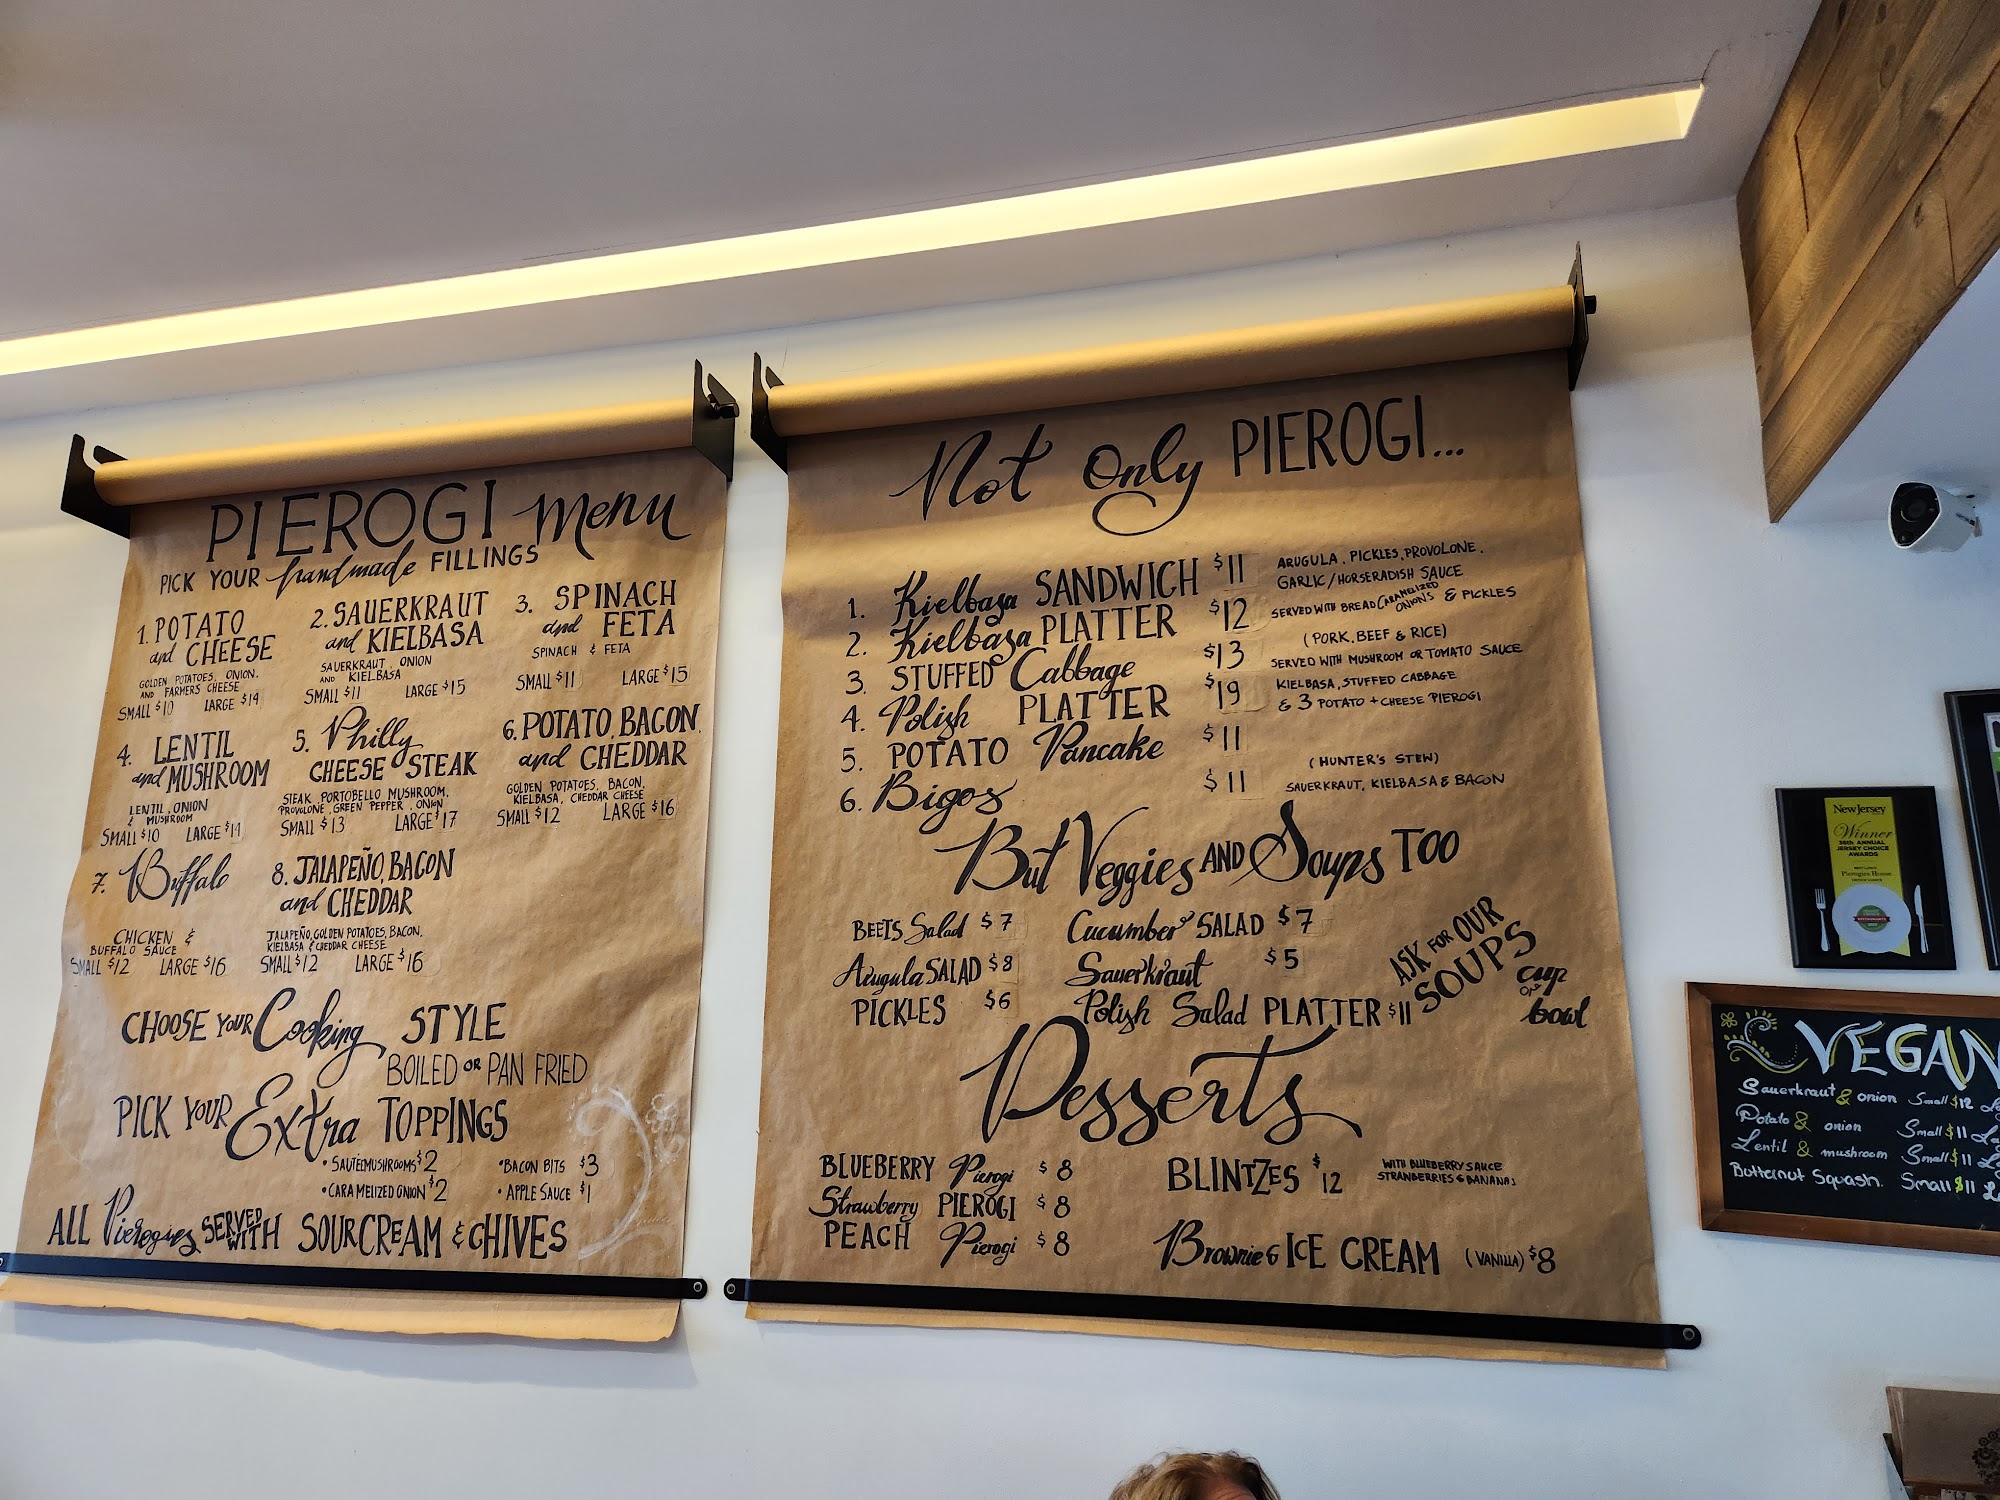 PIEROGI menu
PICK YOUR handmade FILLINGS
1. POTATO
and CHEESE
GOLDEN POTATOES, ONION,
AND FARMERS CHEESE
SMALL $10 LARGE $14
2. SAUERKRAUT
and KIELBASA
SAUERKRAUT, ONION
AND KIELBASA
SMALL $11 LARGE $15
3. SPINACH
and FETA
SPINACH & FETA
SMALL $11 LARGE $15
4. LENTIL
and MUSHROOM
LENTIL, ONION
& MUSHROOM
SMALL $10 LARGE $14
5. Philly
CHEESE STEAK
STEAK, PORTOBELLO MUSHROOM,
PROVOLONE, GREEN PEPPER, ONION
SMALL $13 LARGE $17
6. POTATO, BACON,
and CHEDDAR
GOLDEN POTATOES, BACON,
KIELBASA, CHEDDAR CHEESE
SMALL $12 LARGE $16
7. Buffalo
CHICKEN &
BUFFALO SAUCE
SMALL $12 LARGE $16
8. JALAPEÑO, BACON
and CHEDDAR
JALAPEÑO, GOLDEN POTATOES, BACON,
KIELBASA & CHEDDAR CHEESE
SMALL $12 LARGE $16
CHOOSE YOUR Cooking STYLE
BOILED OR PAN FRIED
PICK YOUR Extra TOPPINGS
• SAUTEEMUSHROOMS $2
• BACON BITS $3
• CARAMELIZED ONION $2
• APPLE SAUCE $1
ALL Pierogies SERVED WITH SOUR CREAM & CHIVES
Not only PIEROGI...
1. Kielbasa SANDWICH $11 ARUGULA, PICKLES, PROVOLONE,
GARLIC/HORSERADISH SAUCE
2. Kielbasa PLATTER $12 SERVED WITH BREAD CARAMELIZED ONIONS & PICKLES
3. STUFFED Cabbage $13 (PORK, BEEF & RICE)
SERVED WITH MUSHROOM OR TOMATO SAUCE
4. Polish PLATTER $19 KIELBASA, STUFFED CABBAGE
& 3 POTATO + CHEESE PIEROGI
5. POTATO Pancake $11
6. Bigos $11 (HUNTER'S STEW)
SAUERKRAUT, KIELBASA & BACON
But Veggies AND Soups TOO
BEETS Salad $7
Cucumber SALAD $7
Arugula SALAD $8
Sauerkraut $5
PICKLES $6
Polish Salad PLATTER $11
ASK FOR OUR
SOUPS
cup
or
bowl
Desserts
BLUEBERRY Pierogi $8
Strawberry PIEROGI $8
PEACH Pierogi $8
BLINTZES $12 WITH BLUEBERRY SAUCE
STRAWBERRIES & BANANAS
Brownie & ICE CREAM (VANILLA) $8
New Jersey
Winner
38th ANNUAL
JERSEY CHOICE
AWARDS
Pierogies House
VEGAN
Sauerkraut & onion Small $12
Potato & onion Small $11
Lentil & mushroom Small $11
Butternut Squash. Small $11